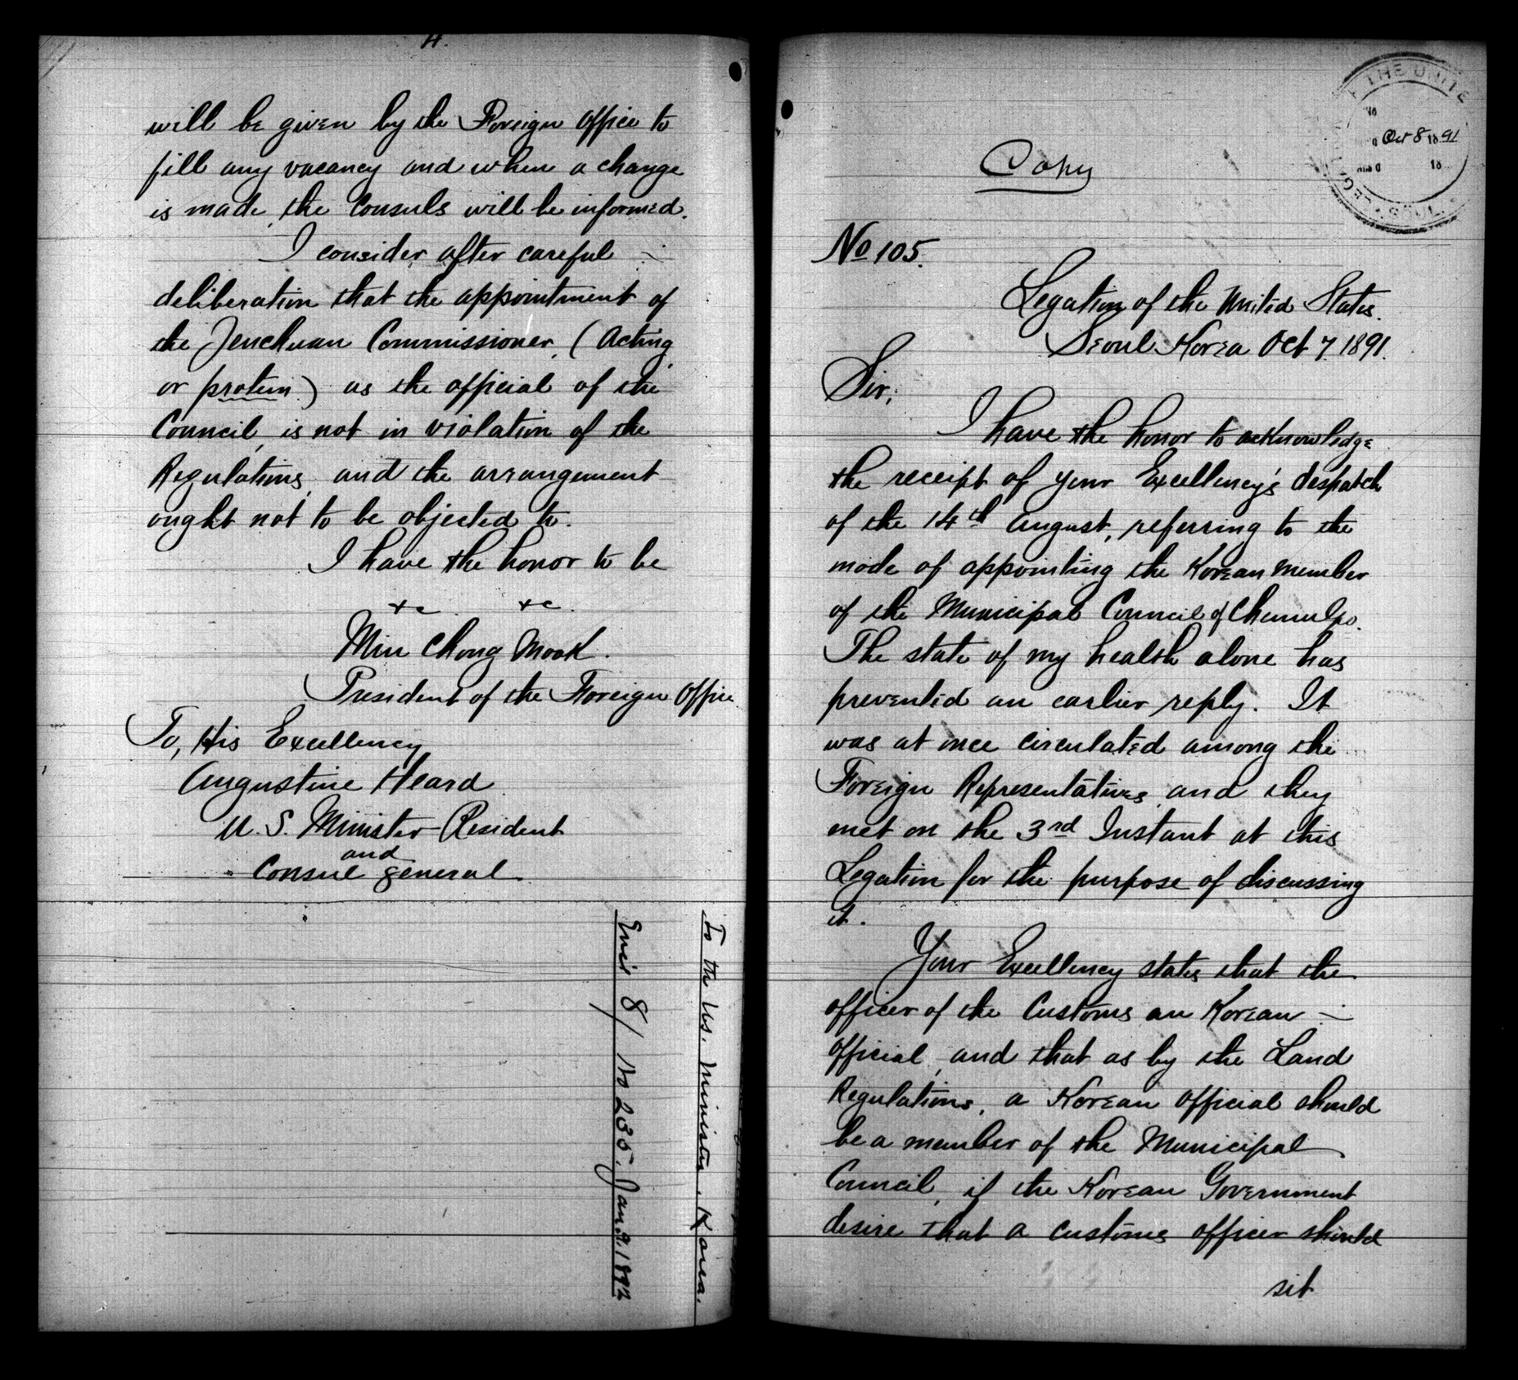 4.
will be given by the Foreign Office to
fill any vacancy and when a change
is made, the Consuls will be informed.
I consider after careful
deliberation that the appointment of
the Jenchuan Commissioner, (Acting
or protem.) as the official of the
Council, is not in violation of the
Regulations, and the arrangement
ought not to be objected to.
I have the honor to be
&c. &c.
Min Chong Mook.
President of the Foreign Office.
To, His Excellency
Augustine Heard
U. S. Minister Resident
and
Consul General.
To the U.S. Minister, Korea.
Encl 8/ No 235. Jan 9. 1892
THE UNITE
Oct 8 1891
18
LEG SOUL
Copy
No 105.
Legation of the United States.
Seoul Korea Oct 7 1891.
Sir;
I have the honor to acknowledge
the receipt of your Excellency's despatch
of the 14th August, referring to the
mode of appointing the Korean member
of the Municipal Council of Chemulpo.
The state of my health alone has
prevented an earlier reply. It
was at once circulated among the
Foreign Representatives, and they
met on the 3rd Instant at this
Legation for the purpose of discussing
it.
Your Excellency states that the
officer of the Customs an Korean
official, and that as by the Land
Regulations, a Korean official should
be a member of the Municipal
Council, if the Korean Government
desire that a customs officer should
sit